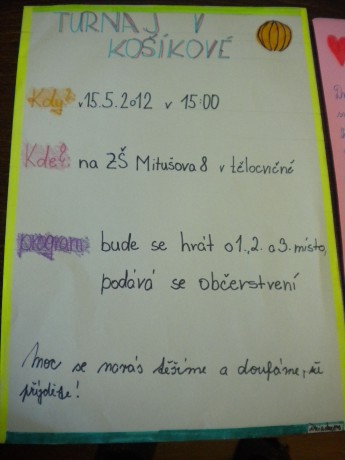 TURNAJ V
KOŠÍKOVÉ
Kdy? v 15.5.2012 v 15:00
Kde? na ZŠ Mitušova 8 v tělocvičně
program bude se hrát o 1., 2. a 3. místo,
podává se občerstvení
Moc se na vás těšíme a doufáme, že
přijdete!